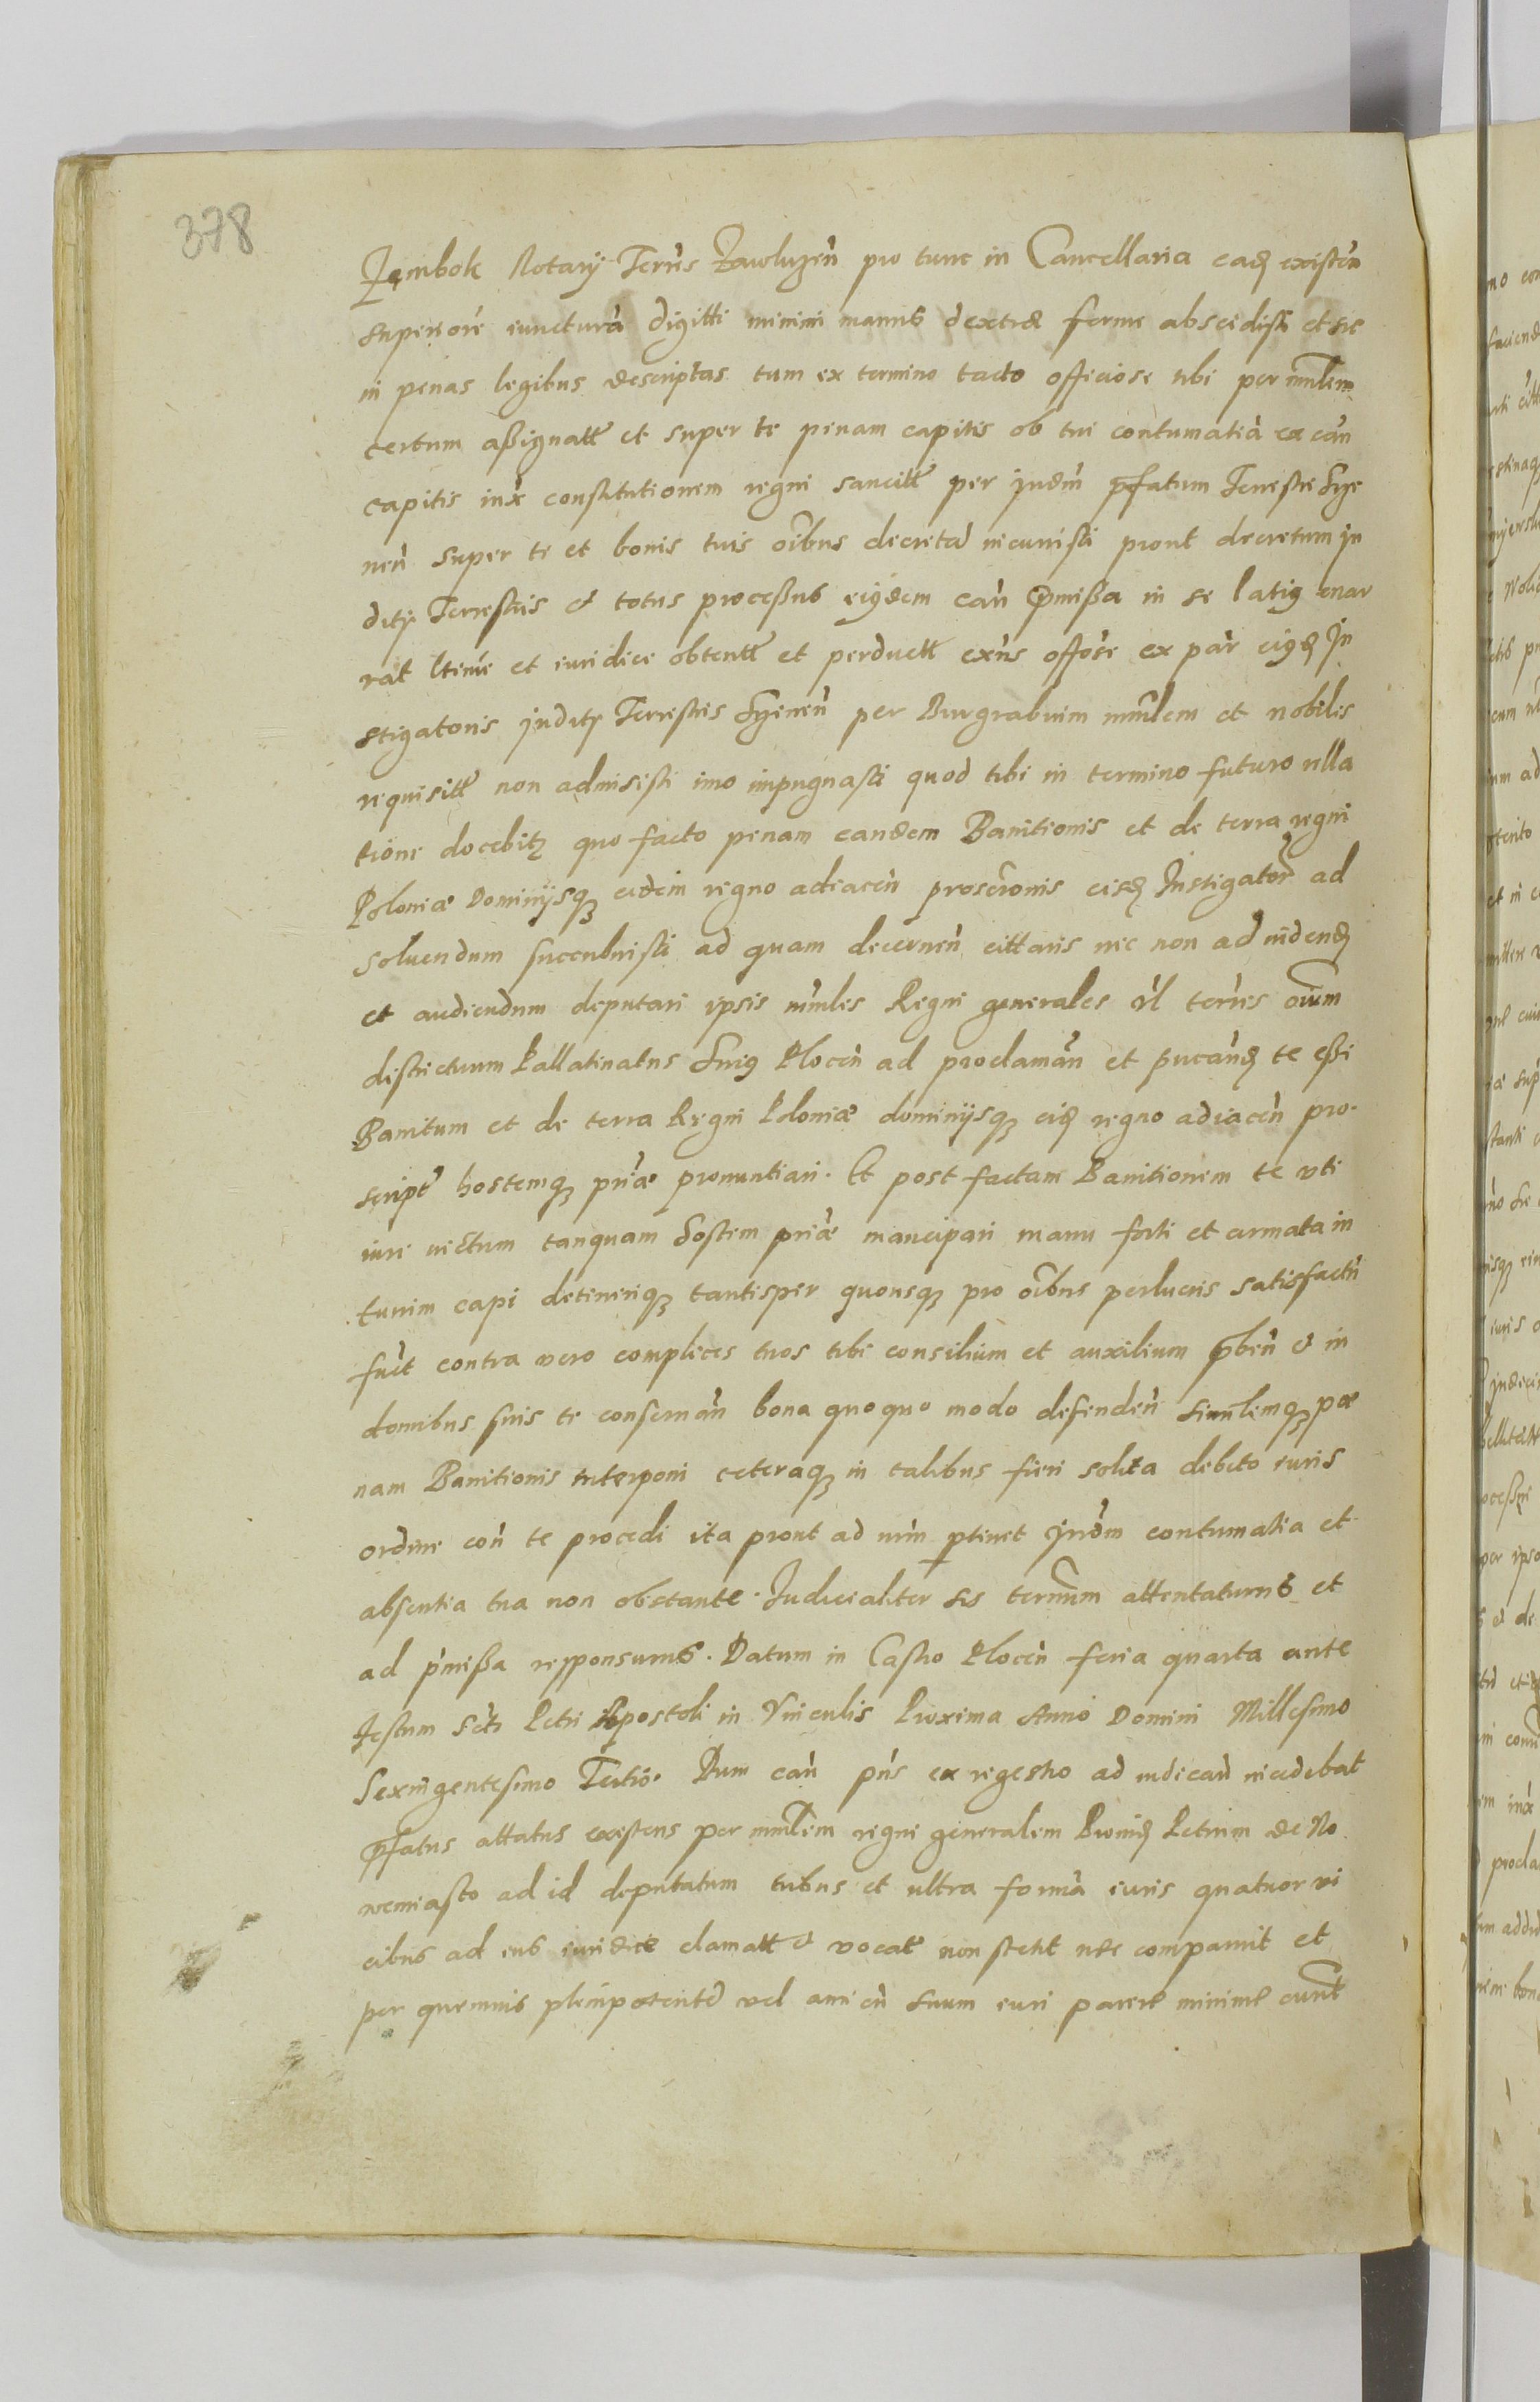 378
Zembok Notarÿ Terris Zawluzen̄ pro tunc in Cancellaria ead existen̄
superiore iunctura digitti minimi manus dextræ ferme abscidisti et sic
in penas legibus descriptas tum ex termino tacto officiose tibi per mn̄lem
certum assignatt et super te penam capitis ob tui contumatia ex can̄
capitis iuxᵃ constitutionem regni sancitt per judm̄ pfatum Terrestre
nen̄ super te et bonis tuis oībus decreta incurristi prout decretum ju
ditÿ Terrestris et totus processus eiusdem can̄ pmissa in se latius enar
rat et iuridice obtentt et perductt ex par eius In
stigatoris juditÿ Terrestris per Burgrabium mn̄lem et nobiles
requisitt non admisisti imo impugnasti quod tibi in termino futuro illa
tione docebitr quo facto penam eandem Banitionis et de terra regni
Poloniæ Dominÿsq eidem regno adiacen̄ proscronis Instigator ad
soluendum succubuisti ad quam decernen̄ cittaris nec non ad videnđ
et audiendum deputari ipsis mn̄les Regni generales vl terres oīum
districtuum Pallatinatus huius Plocen̄ ad proclaman̄ et pucanđ te esse
Banitum et de terra Regni Poloniæ dominÿsq regno adiacen̄ pro-
script hostemq prīæ pronuntiari. Et post factam Banitionem te vti
iure victum tanquam hostem prīæ mancipari manu forti et armata in
turrim capi detineriq tantisper quousq pro oībus perlucris satisfactū
fuēt contra vero complices tuos tibi consilium et auxilium pben̄ et in
domibus suis te conseruan̄ bona quoquo modo defenden̄ similemq pæ
nam Banitionis interponi ceteraq in talibus fieri solita debito iuris
ordine con̄ te procedi ita prout ad ptinet contumatia et
absentia tua non obstante. Judicialiter sis termūm attentaturus et
ad pmissa responsurus. Datum in Castro Plocen̄ feria quarta ante
festum Scti Petri Apostoli in Vinculis Proxima Anno Domini Millesimo
Sexingentesimo Tertio. Dum can̄ pn̄s ex regestro ad iudican̄ incidebat
pfatus attatus existens per mn̄lem regni generalem Petrum de No
wemiasto ad id deputatum tribus et ultra forma iuris quatuor vi
cibus ad ius iuridice clamatt et vocat non stetit nec comparuit et
per quemuis plenipotente vel amicū suum iuri parere minime curāt